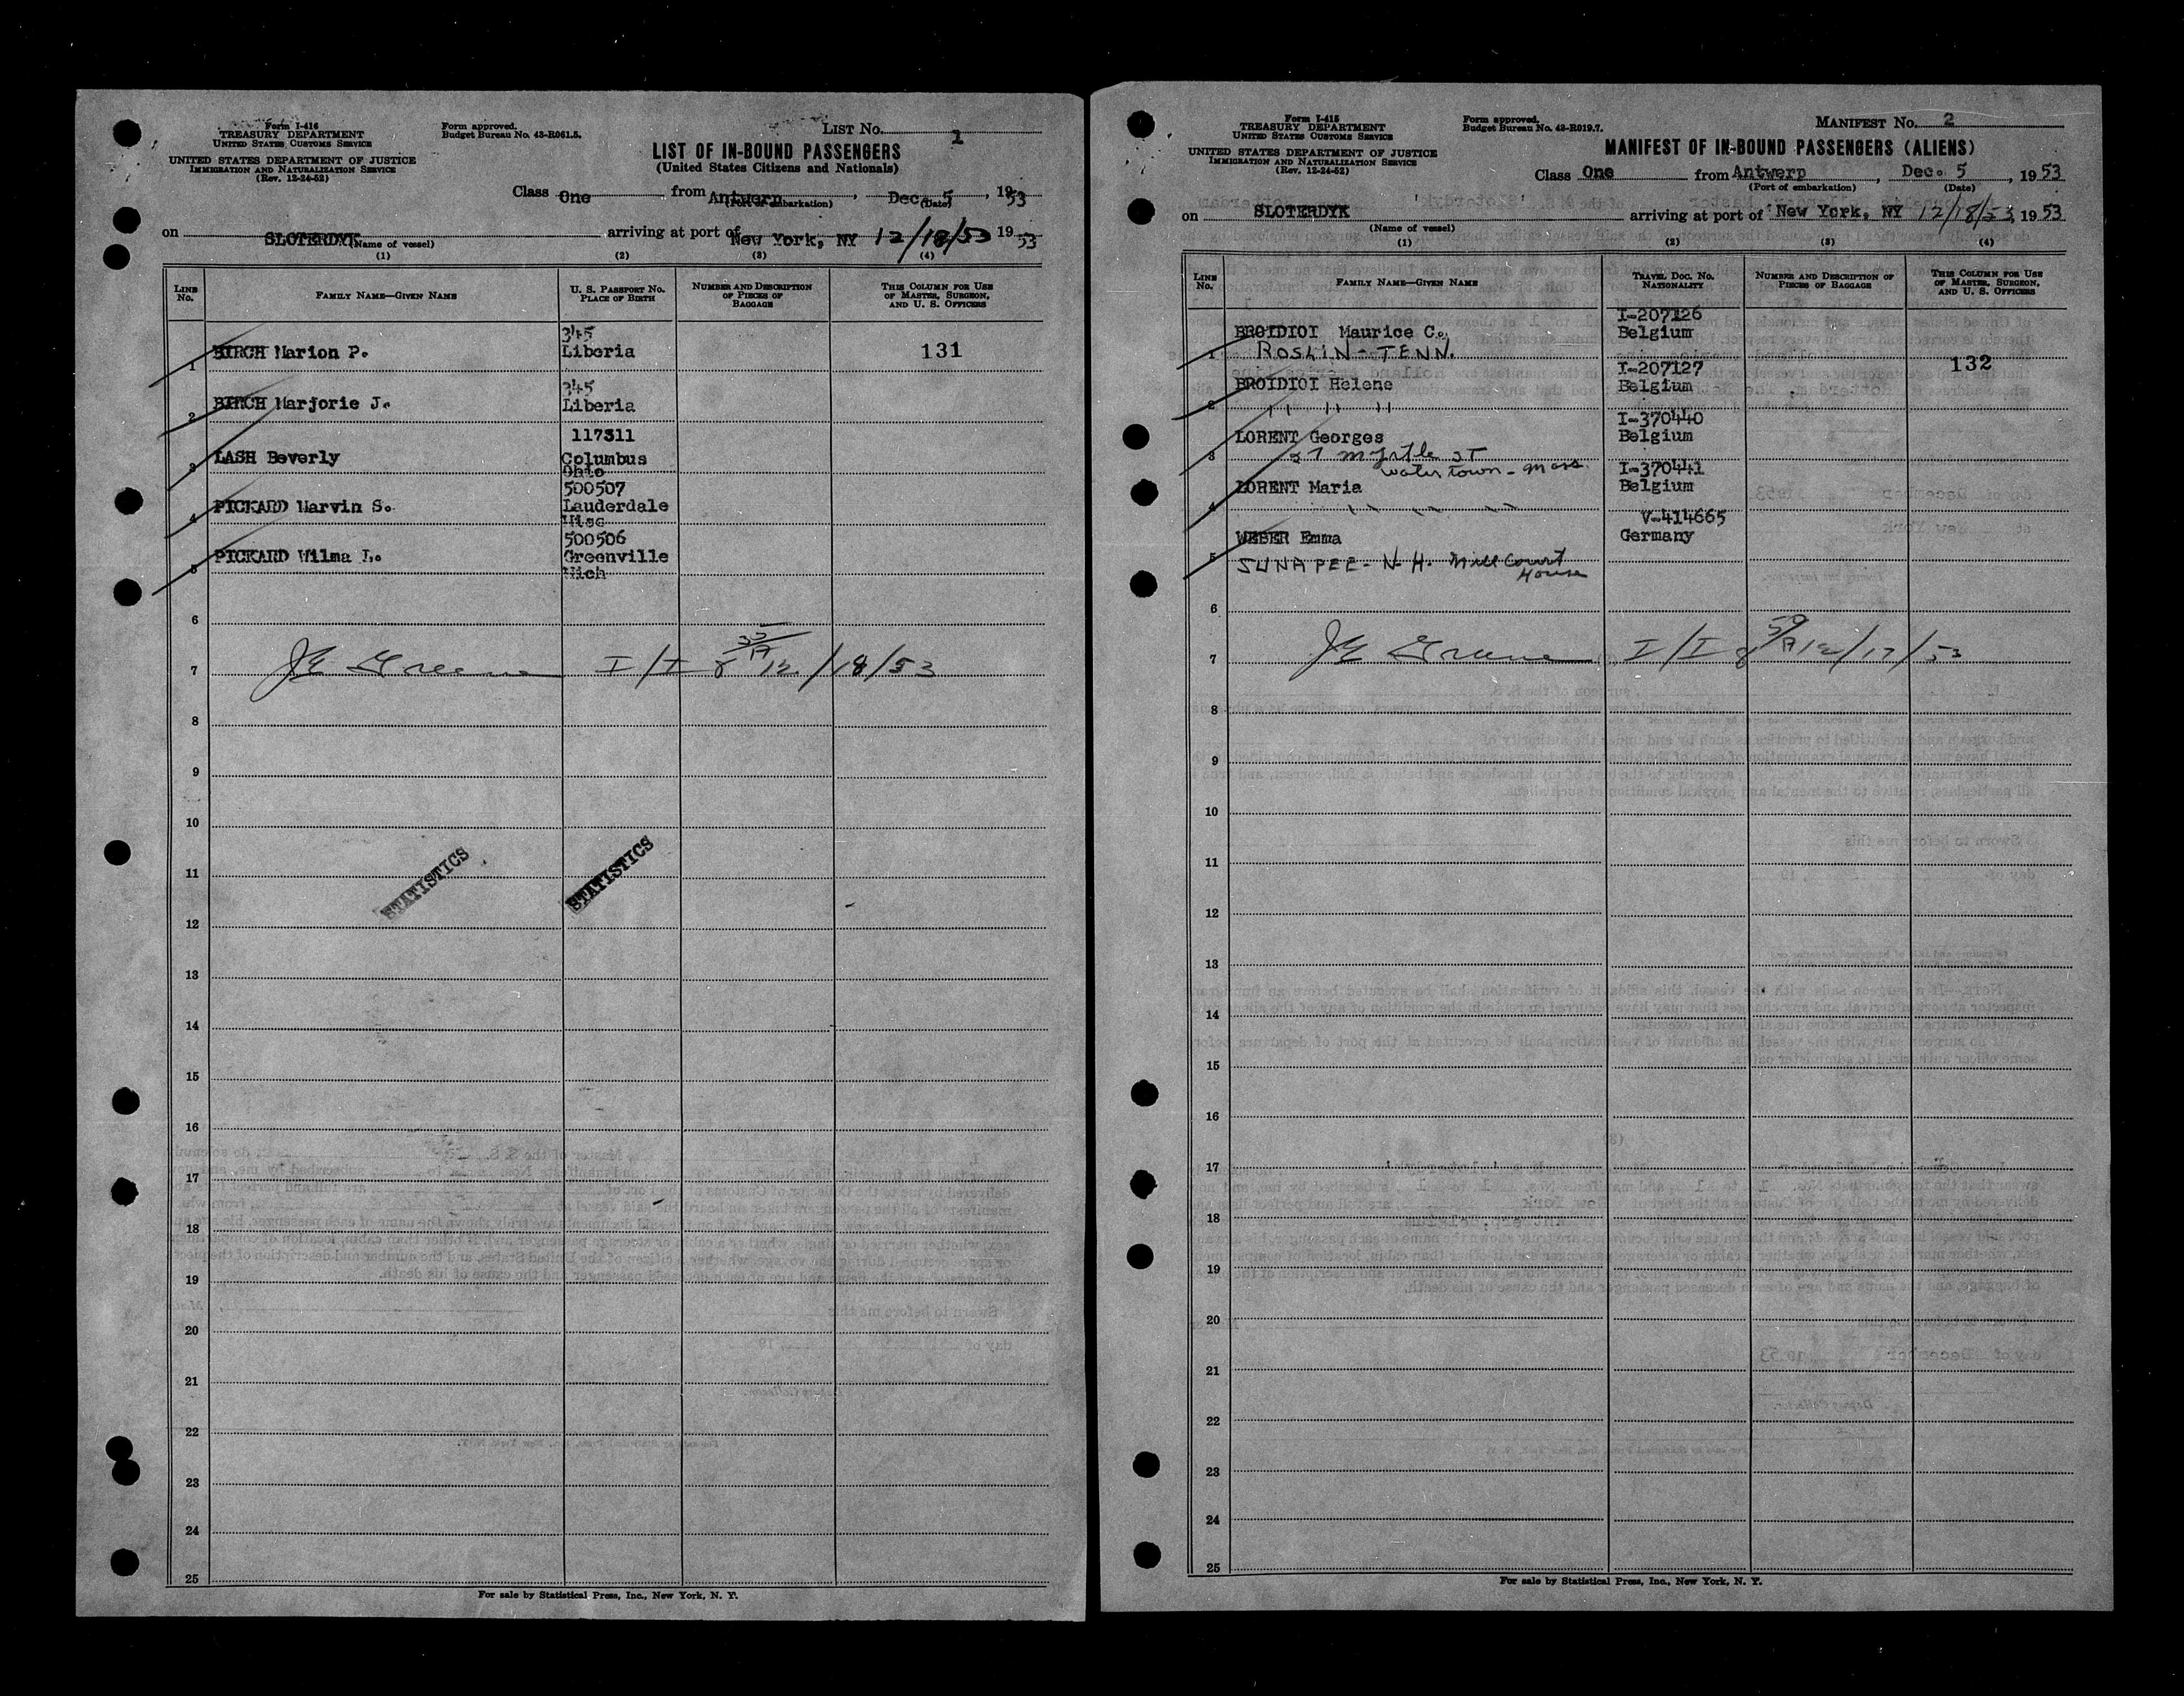 Form I-416
TREASURY DEPARTMENT
UNITED STATES CUSTOMS SERVICE
UNITED STATES DEPARTMENT OF JUSTICE
IMMIGRATION AND NATURALIZATION SERVICE
(Rev. 12-24-52)
Form approved.
Budget Bureau No. 43-R061.5.
LIST No. 1
LIST OF IN-BOUND PASSENGERS
(United States Citizens and Nationals)
Class One from Antwerp, Dec. 5, 1953
(Port of embarkation) (Date)
on SLOTERDYK arriving at port of New York, NY 12/18/53 1953
(Name of vessel)
(1) (2) (3) (4)
LINE No. FAMILY NAME—GIVEN NAME U. S. PASSPORT NO. PLACE OF BIRTH NUMBER AND DESCRIPTION OF PIECES OF BAGGAGE THIS COLUMN FOR USE OF MASTER, SURGEON, AND U. S. OFFICERS
345
1 BIRCH Marion P. Liberia 131
345
2 BIRCH Marjorie J. Liberia
117311
3 LASH Beverly Columbus
Ohio
500507
4 PICKARD Marvin S. Lauderdale
Misc
500506
5 PICKARD Wilma L. Greenville
Mich
6
7 JE Greene I/I 12/18/53
8
9
10
11
STATISTICS STATISTICS
12
13
14
15
16
17
18
19
20
21
22
23
24
25
For sale by Statistical Press, Inc., New York, N. Y.
Form I-415
TREASURY DEPARTMENT
UNITED STATES CUSTOMS SERVICE
UNITED STATES DEPARTMENT OF JUSTICE
IMMIGRATION AND NATURALIZATION SERVICE
(Rev. 12-24-52)
Form approved.
Budget Bureau No. 43-R019.7.
MANIFEST No. 2
MANIFEST OF IN-BOUND PASSENGERS (ALIENS)
Class One from Antwerp, Dec. 5, 1953
(Port of embarkation) (Date)
on SLOTERDYK arriving at port of New York, NY 12/18/53, 1953
(Name of vessel)
(1) (2) (3) (4)
LINE No. FAMILY NAME—GIVEN NAME TRAVEL DOC. NO. NATIONALITY NUMBER AND DESCRIPTION OF PIECES OF BAGGAGE THIS COLUMN FOR USE OF MASTER, SURGEON, AND U. S. OFFICERS
I-207126
BROIDIOI Maurice C. Belgium
1 ROSLIN - TENN. 132
I-207127
BROIDIOI Helene Belgium
2 " " "
I-370440
LORENT Georges Belgium
3 27 Myrtle ST
Watertown - Mass.
I-370441
LORENT Maria Belgium
4 " " "
V-414665
WEBER Emma Germany
5 SUNAPEE - N. H. Mill Court
House
6
7 JE Greene I/I 12/17/53
8
9
10
11
12
13
14
15
16
17
18
19
20
21
22
23
24
25
For sale by Statistical Press, Inc., New York, N. Y.